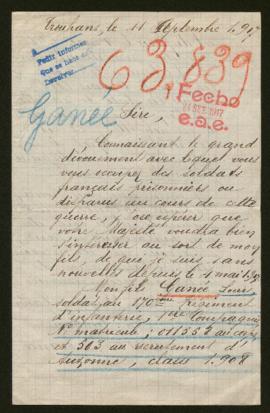 Trouhans, le 11 Septembre 1917
Pedir informes
que se hace
Devolver
63,839
Fecho
24 SEP. 1917
e.a.e.
Ganée
Sire,
Connaissant le grand
dévouement avec lequel vous
vous occupez des soldats
français prisonniers ou
disparus au cours de cette
guerre, j'ose espérer que
votre Majesté voudra bien
s'intéresser au sort de mon
fils, de qui je suis sans
nouvelles depuis le 4 mai
Mon fils Ganée Louis
soldat au 170eme régiment
d'infanterie, 1ere Compagnie
N° matricule: 011553 au corps
et 503 au recrutement d'
Auxonne, classe 1908